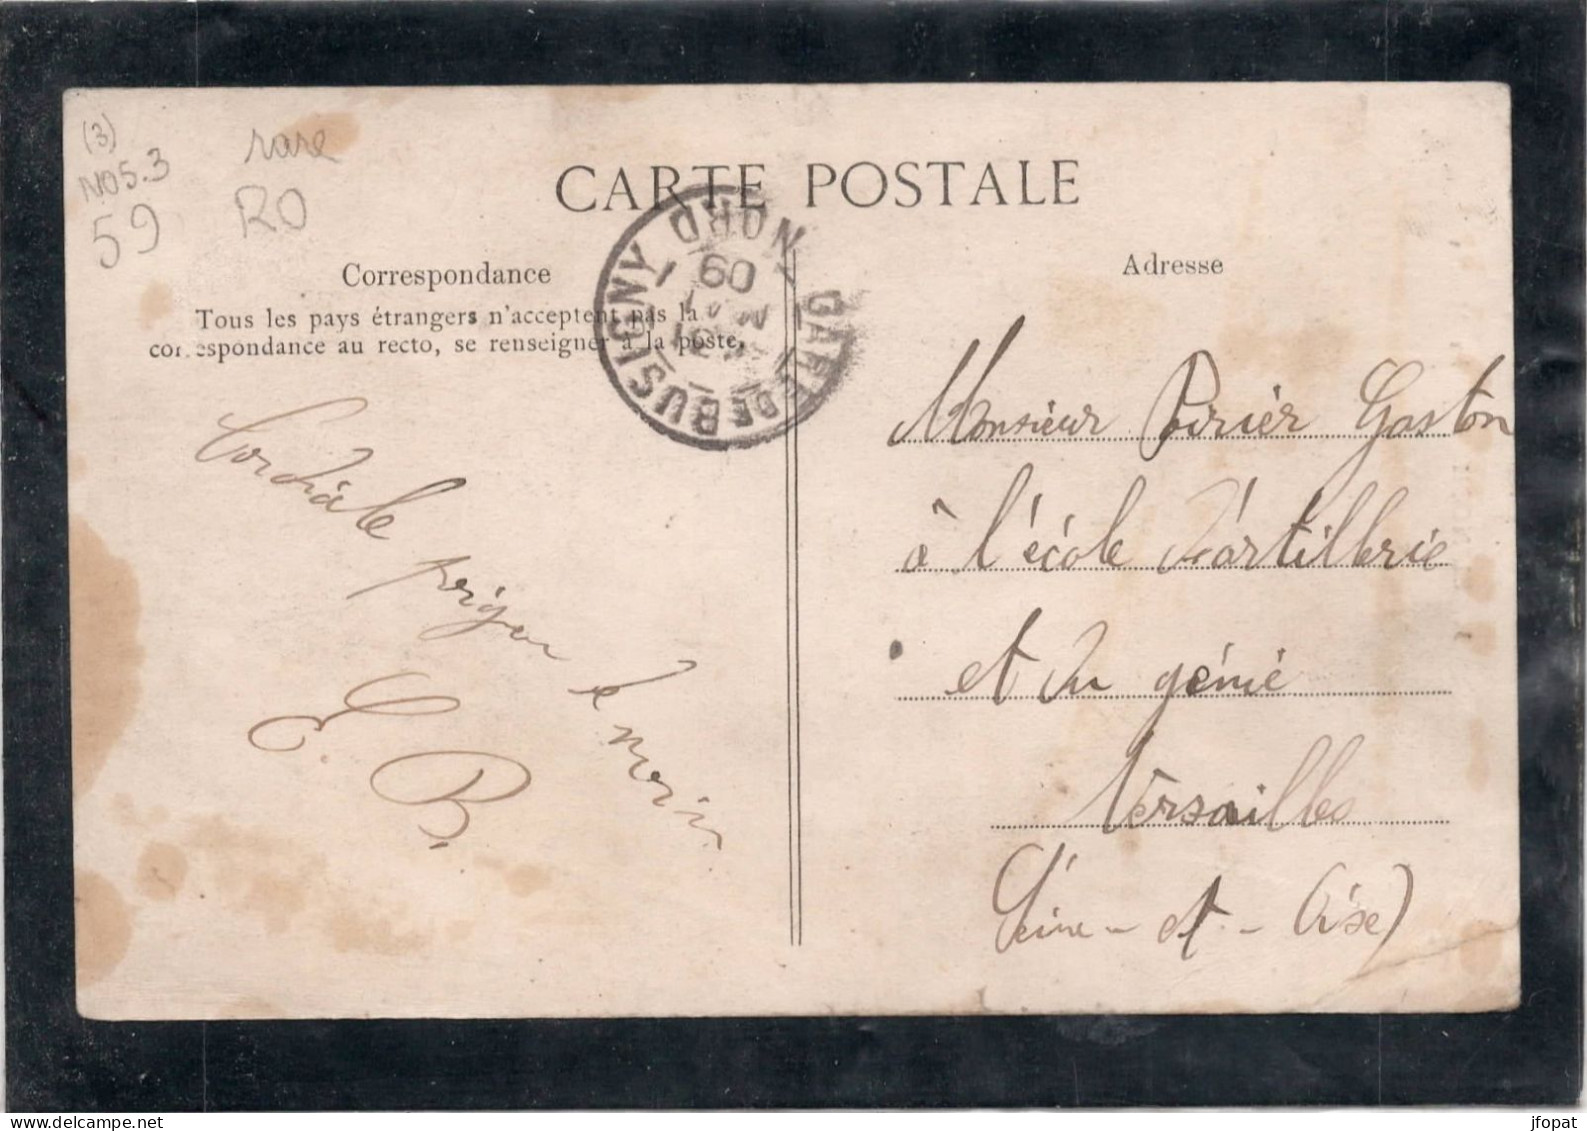 (3)
NO5.3
59
rare
RO
CARTE POSTALE
GARE DE BUSIGNY NORD
09
Correspondance
Adresse
Tous les pays étrangers n'acceptent pas la
correspondance au recto, se renseigner à la poste.
Cordiale poignée
de main
E. B.
Monsieur Poirier Gaston
à l'école d'artillerie
et du génie
Versailles
(Seine-et-Oise)
jfopat